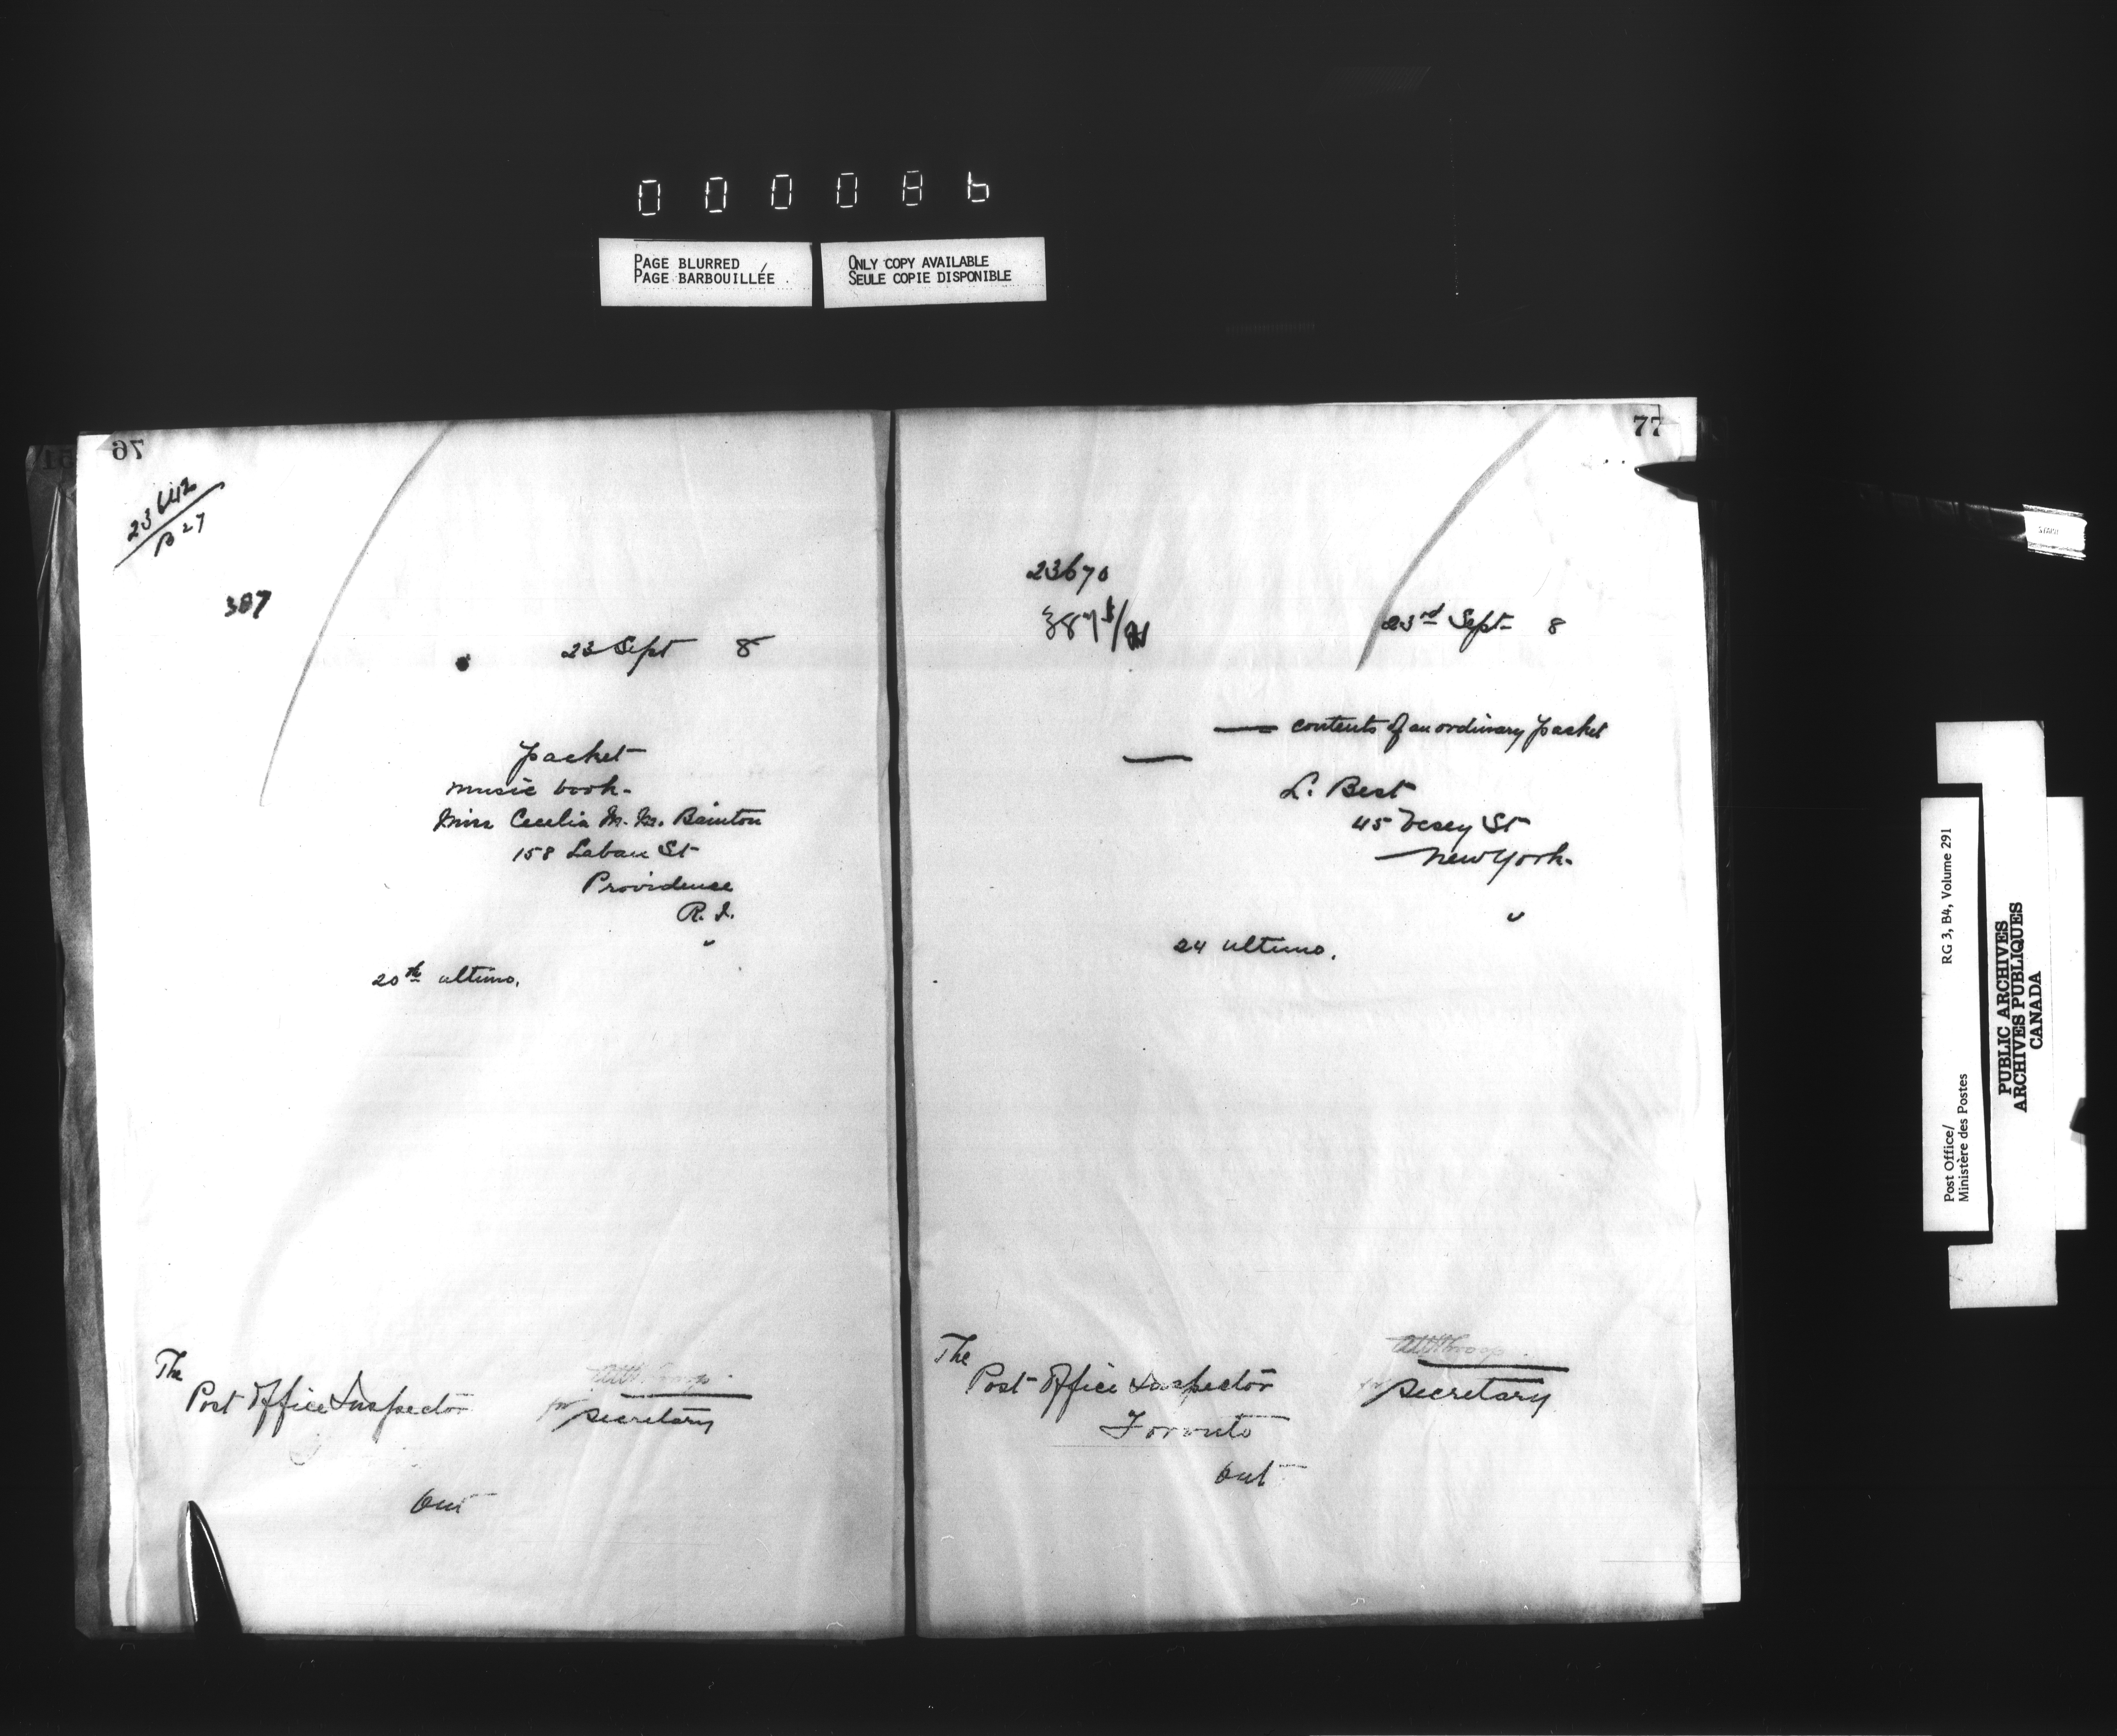 000086
PAGE BLURRED
PAGE BARBOUILLÉE
ONLY COPY AVAILABLE
SEULE COPIE DISPONIBLE
76
23642
B27
387
23 Sept 8
packet
music book-
Miss Cecelia M. M. Bainton
158 Laban St
Providence
R. I.
"
20th ultimo.
The
Post Office Inspector
for Secretary
Out
77
23670
387
23rd Sept 8
— contents of an ordinary packet
—
L. Best
45 Vesey St
New York-
"
24 ultimo.
The
Post Office Inspector
Toronto
for Secretary
Out
Post Office/
Ministère des Postes
RG 3, B4, Volume 291
PUBLIC ARCHIVES
ARCHIVES PUBLIQUES
CANADA